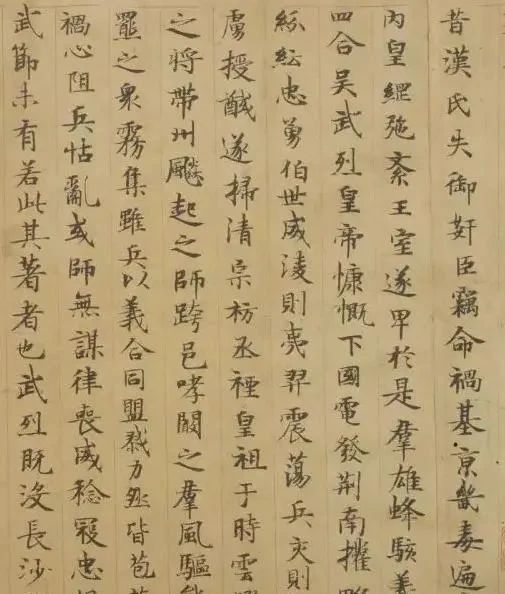 昔漢氏失御奸臣竊命禍基京畿毒遍
內皇綱弛紊王室遂卑於是羣雄蜂駭義
四合吴武烈皇帝慷慨下國電發荆南權
紛紜忠勇伯世威淩則夷羿震蕩兵交則
虜授馘遂掃清宗祊丞禋皇祖于時雲
之將帶州飈起之師跨邑哮闞之羣風驅
羆之衆霧集雖兵以義合同盟戮力然皆苞
禍心阻兵怙亂或師無謀律喪威稔寇忠
武節未有若此其著者也武烈既沒長沙